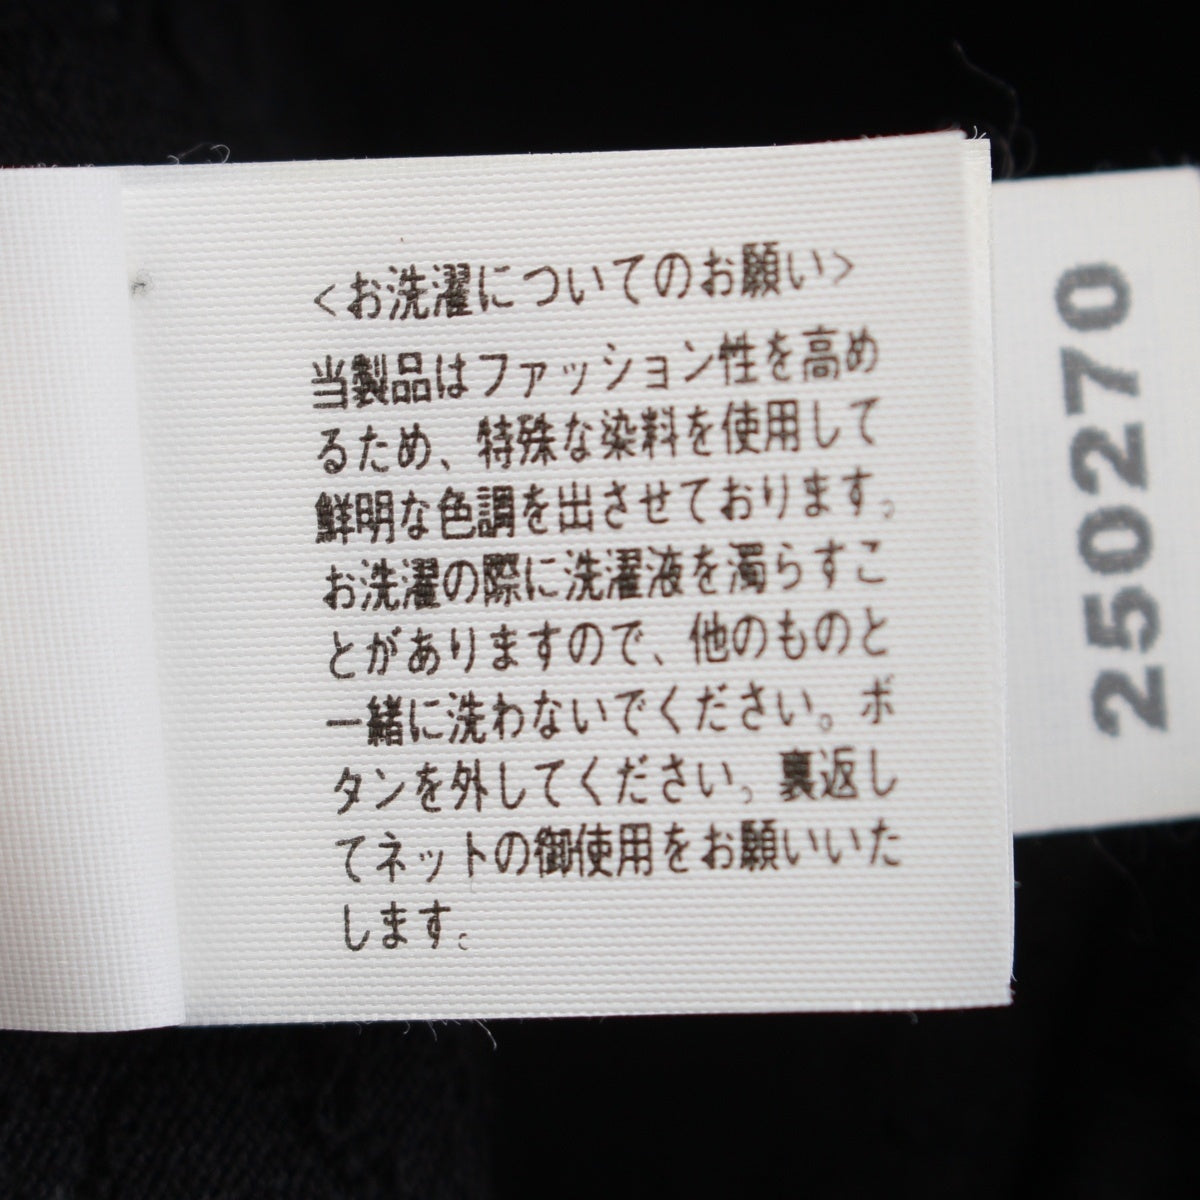 <お洗濯についてのお願い>
当製品はファッション性を高め
るため、特殊な染料を使用して
鮮明な色調を出させております。
お洗濯の際に洗濯液を濁らすこ
とがありますので、他のものと
一緒に洗わないでください。ボ
タンを外してください。裏返し
てネットの御使用をお願いいた
します。
250270